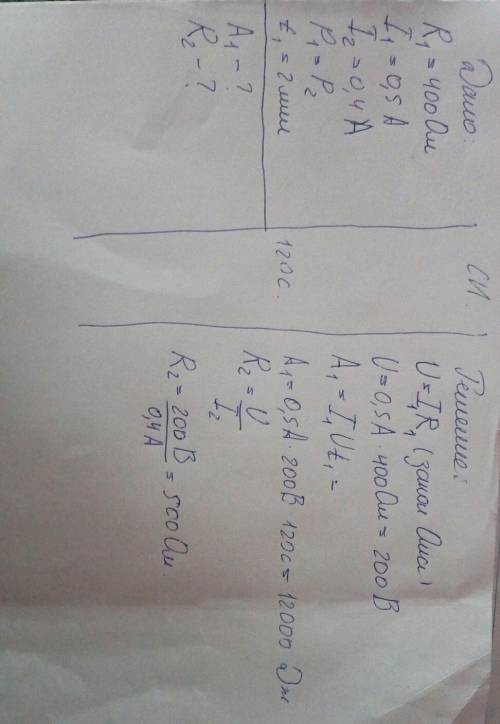 Дано:
R₁ = 400 Ом
I₁ = 0,5 А
I₂ = 0,4 А
P₁ = P₂
t₁ = 2 мин
A₁ - ?
R₂ - ?
СИ.
120с.
Решение:
U = I₁R₁ (закон Ома)
U = 0,5А · 400 Ом = 200 В
A₁ = I₁Ut₁ =
A₁ = 0,5А · 200В 120с = 12000 Дж
R₂ = U/I₂
R₂ = 200 В/0,4 А = 500 Ом.